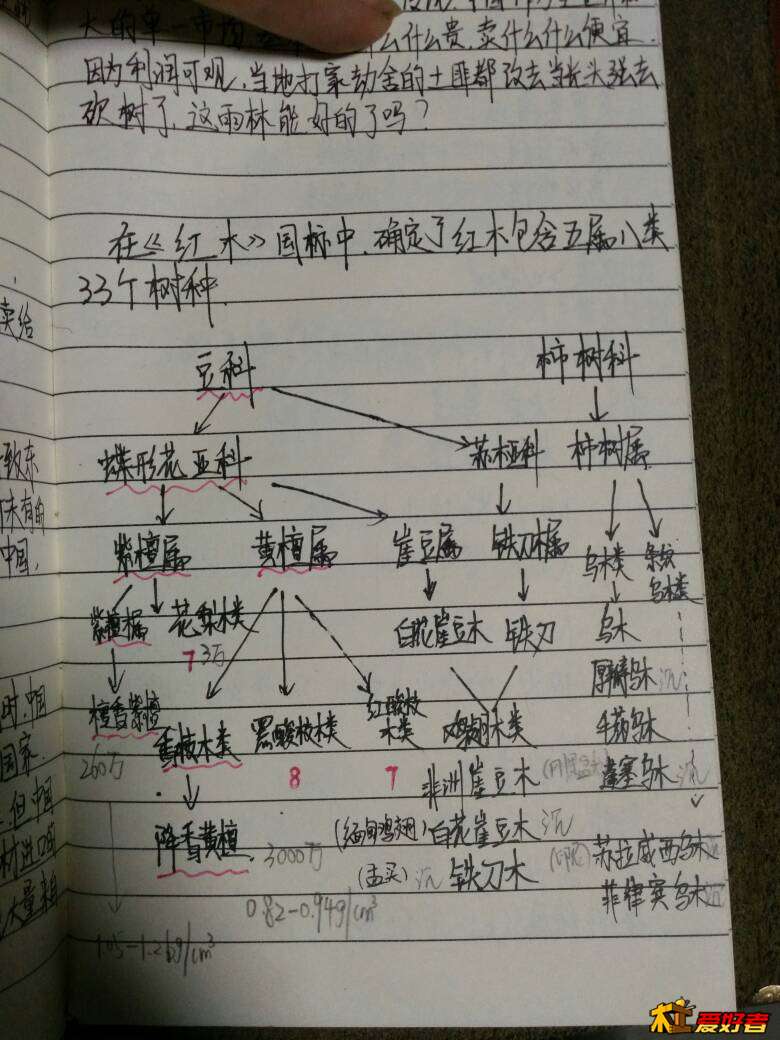 大的单一市场
什么什么贵,卖什么什么便宜.
因为利润可观,当地打家劫舍的土匪都改去当光头强去
砍树了,这雨林能好的了吗?
在《红木》国标中,确定了红木包含五属八类
33个树种.
豆科 柿树科
蝶形花亚科 苏木亚科 柿树属
紫檀属 黄檀属 崖豆属 铁刀木属 乌木类 条纹乌木类
紫檀属 花梨木类 白花崖豆木 铁刀 乌木
7 3万 厚瓣乌木 沉
檀香紫檀 香枝木类 黑酸枝木类 红酸枝木类 鸡翅木类 毛药乌木
260万 8 7 非洲崖豆木 蓬塞乌木 沉
降香黄檀 3000万 (缅甸鸡翅) 白花崖豆木 沉 苏拉威西乌木
(孟买) 沉 铁刀木 菲律宾乌木 沉
0.82-0.94g/cm³
1.05-1.26g/cm³
卖给
致东
未有的
中国,
时,中国
国家.
但中国
材进口
大量
木工爱好者